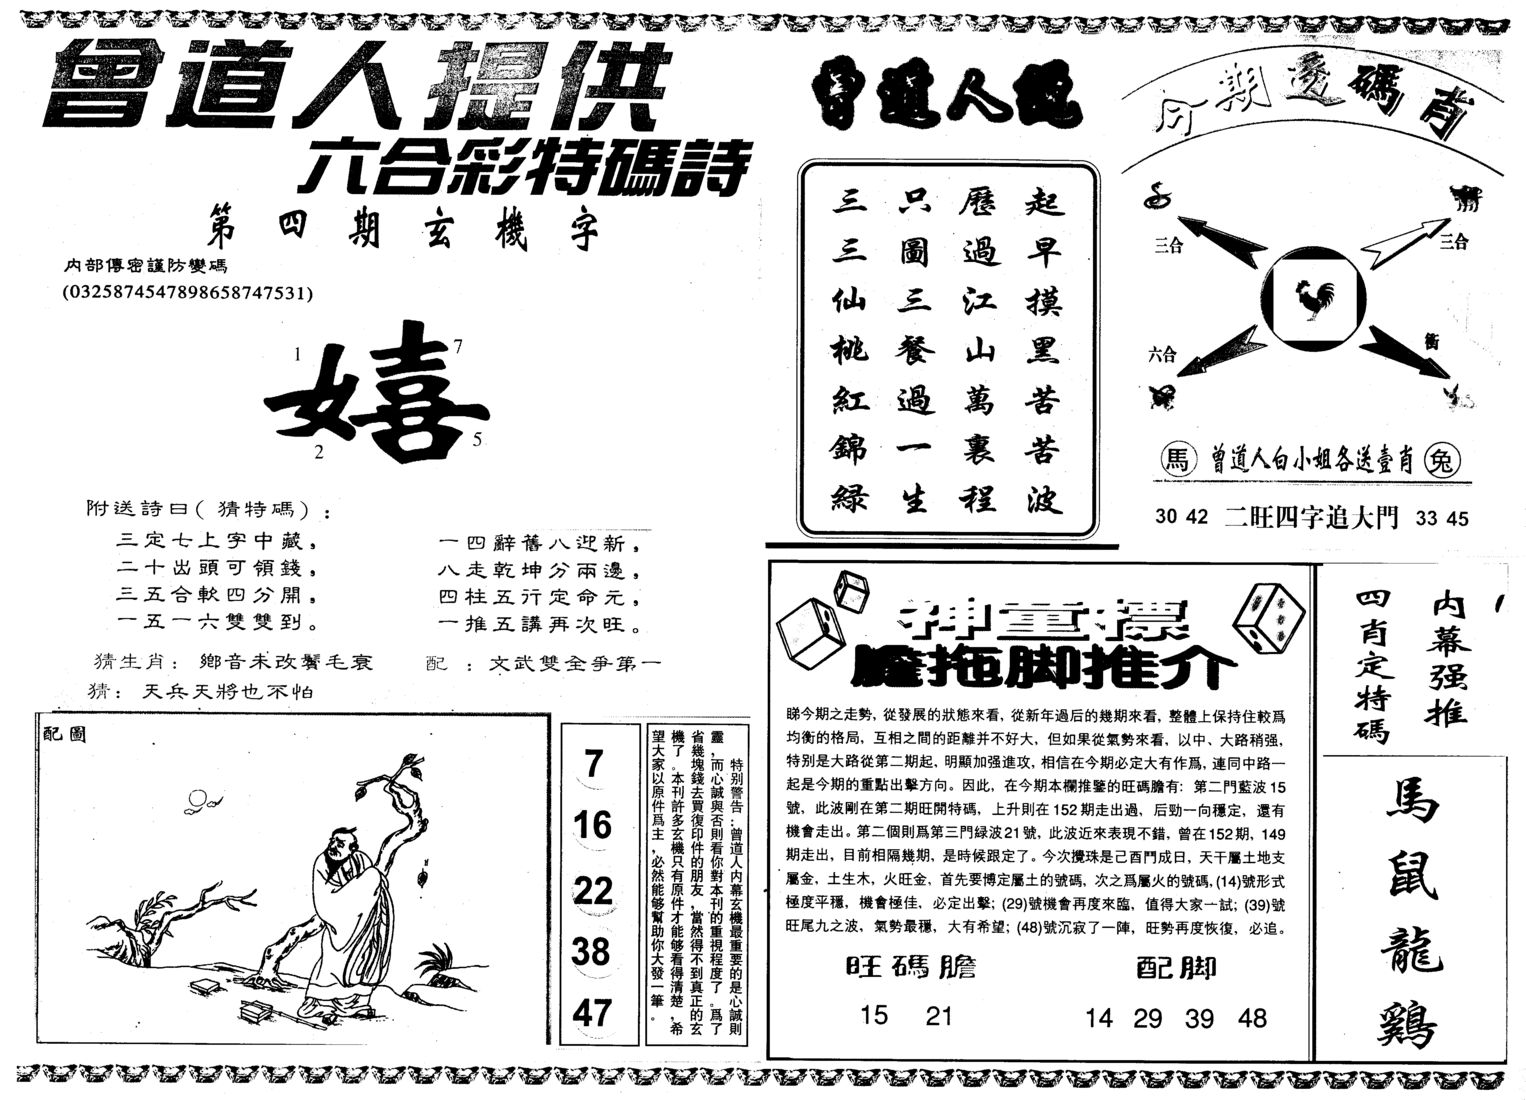 曾道人提供
六合彩特碼詩
第四期玄機字
内部傳密謹防變碼
(0325874547898658747531)
嬉
1
7
2
5
附送詩曰(猜特碼):
三定七上字中藏,
二十出頭可領錢,
三五合軟四分開,
一五一六雙雙到。
一四辭舊八迎新,
八走乾坤分兩邊,
四柱五行定命元,
一推五講再次旺。
猜生肖: 鄉音未改鬢毛衰
配 : 文武雙全爭第一
猜: 天兵天將也不怕
配圖
7
16
22
38
47
特别警告:曾道人内幕玄機最重要的是心誠則
靈,而心誠與否則看你對本刊的重視程度了。爲了
省幾塊錢去買復印件的朋友,當然得不到真正的玄
機了。本刊許多玄機只有原件才能够看得清楚,希
望大家以原件爲主,必然能够幫助你大發一筆。
曾道人說
起早摸黑苦苦波
歷過江山萬裏程
只圖三餐過一生
三三仙桃紅錦緑
期
碼肖
三合
三合
六合
衝
馬 曾道人白小姐各送壹肖 兔
30 42 二旺四字追大門 33 45
神童標
膽拖脚推介
睇今期之走勢, 從發展的狀態來看, 從新年過后的幾期來看, 整體上保持住較爲
均衡的格局, 互相之間的距離并不好大, 但如果從氣勢來看, 以中、大路稍强,
特别是大路從第二期起, 明顯加强進攻, 相信在今期必定大有作爲, 連同中路一
起是今期的重點出擊方向。因此, 在今期本欄推鑒的旺碼膽有: 第二門藍波15
號, 此波剛在第二期旺開特碼, 上升則在152期走出過, 后勁一向穩定, 還有
機會走出。第二個則爲第三門緑波21號, 此波近來表現不錯, 曾在152期, 149
期走出, 目前相隔幾期, 是時候跟定了。今次攪珠是己酉門成日, 天干屬土地支
屬金, 土生木, 火旺金, 首先要博定屬土的號碼, 次之爲屬火的號碼, (14)號形式
極度平穩, 機會極佳, 必定出擊; (29)號機會再度來臨, 值得大家一試; (39)號
旺尾九之波, 氣勢最穩, 大有希望; (48)號沉寂了一陣, 旺勢再度恢復, 必追。
旺碼膽
配脚
15 21
14 29 39 48
内幕强推
四肖定特碼
馬鼠龍鷄